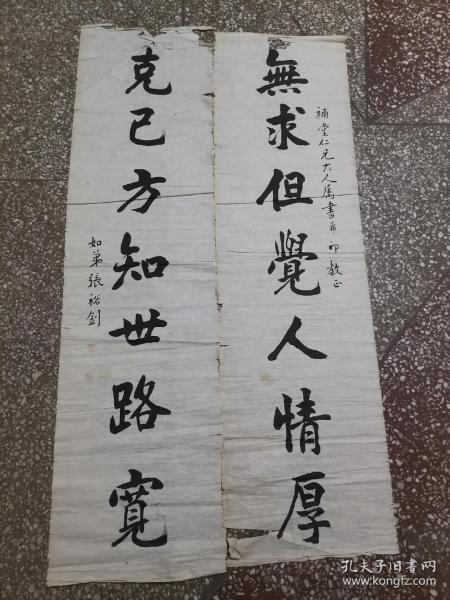 無求但覺人情厚
補堂仁兄大人属書即希教正
克己方知世路寬
如弟張裕釗
孔夫子旧书网
www.kongfz.com